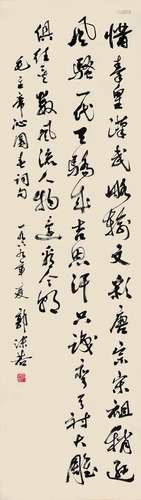 惜秦皇漢武略輸文彩唐宗宋祖稍遜
風騷一代天驕成吉思汗只識彎弓射大雕
俱往矣數風流人物還看今朝
毛主席沁園春詞句
一九六九年夏 郭沫若